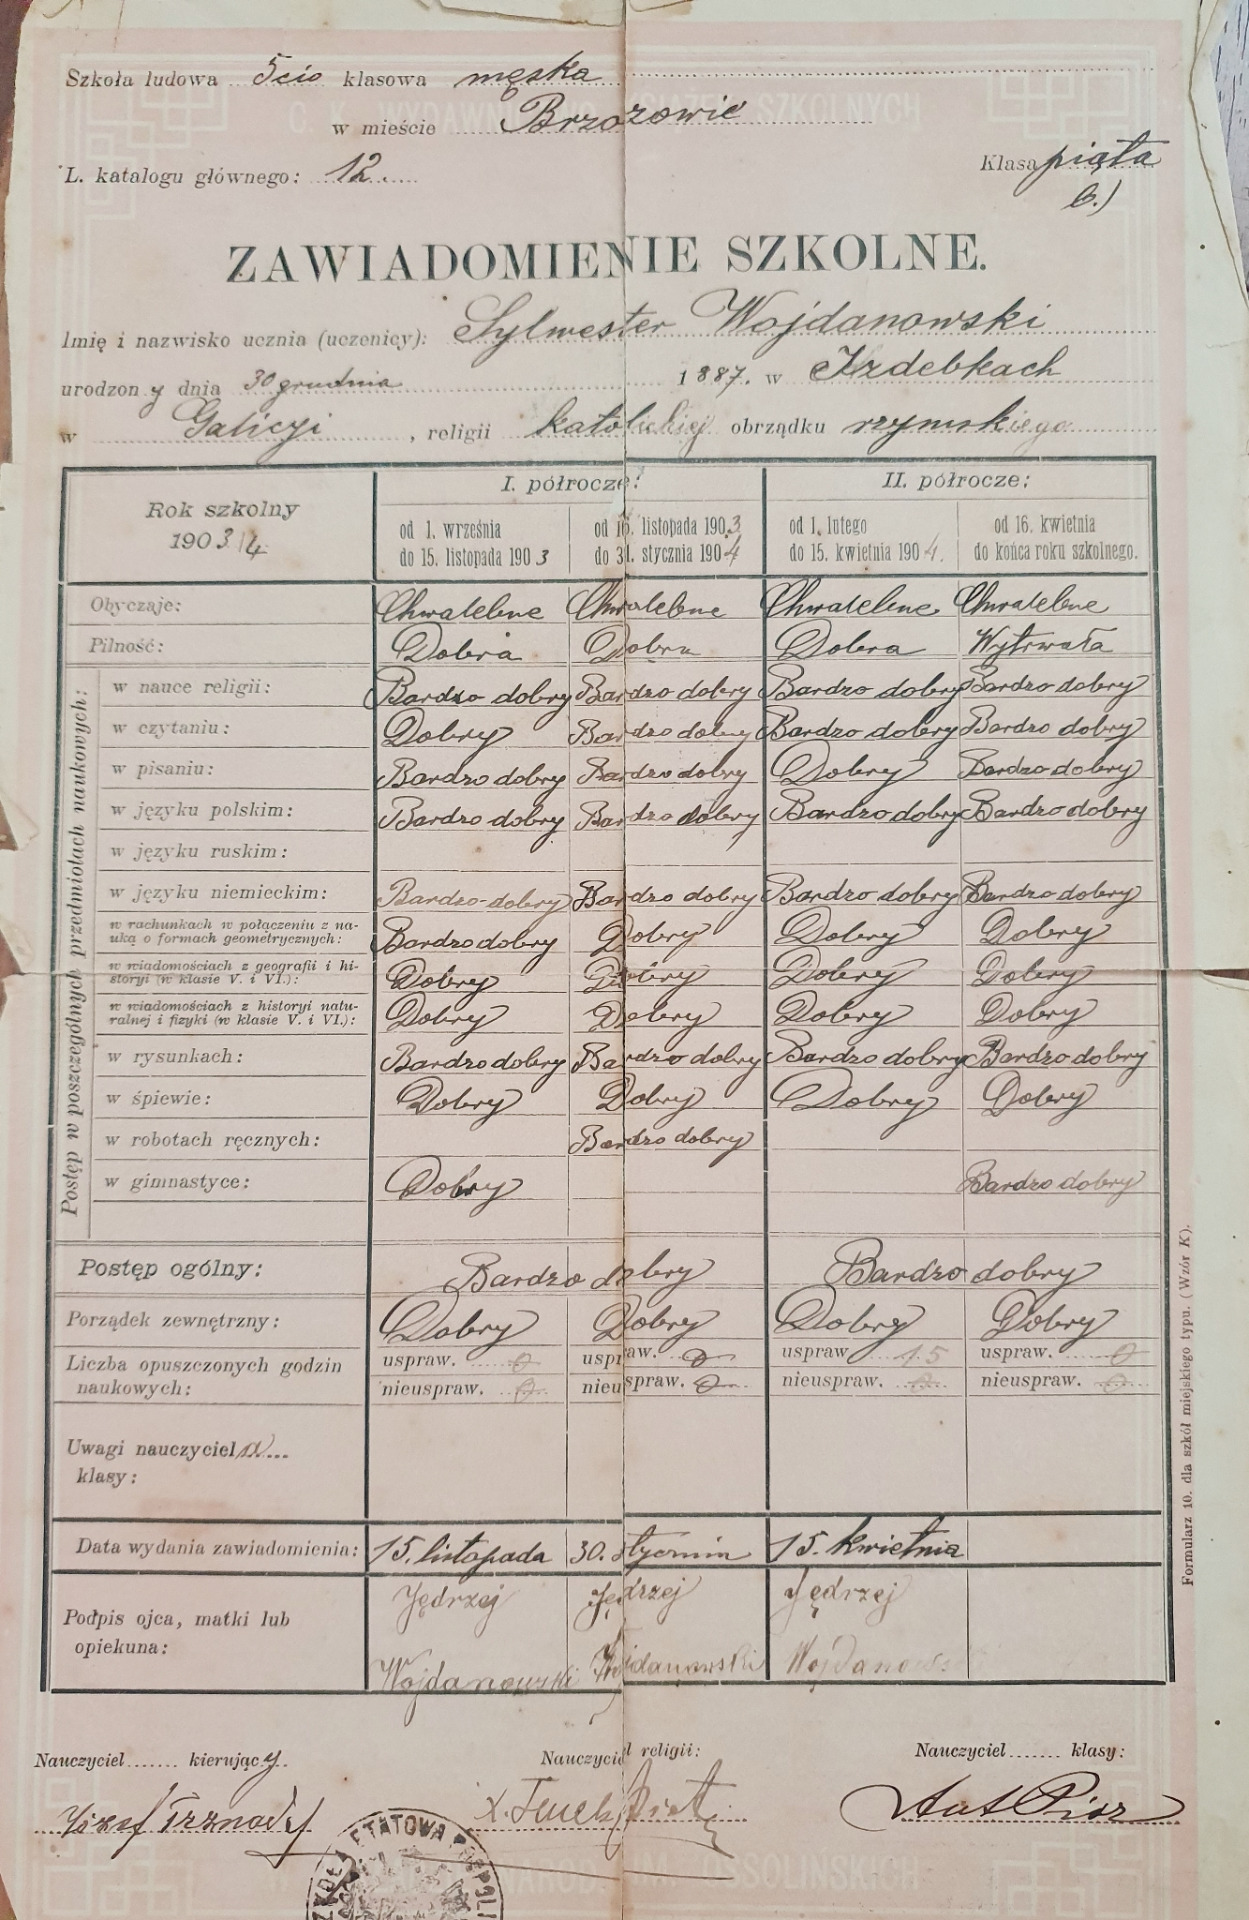 Szkoła ludowa 5cio klasowa męska
C. K. WYDAWNICTWO KSIĄŻEK SZKOLNYCH
w mieście Brzozowie
L. katalogu głównego: 12.
Klasa piąta
b.)
ZAWIADOMIENIE SZKOLNE.
Imię i nazwisko ucznia (uczenicy): Sylwester Wojdanowski
urodzony dnia 30 grudnia 1887. w Izdebkach
w Galicyi, religii katolickiej obrządku rzymskiego
Rok szkolny 1903/4
I. półrocze: II. półrocze:
od 1. września do 15. listopada 1903
od 16. listopada 1903 do 31. stycznia 1904
od 1. lutego do 15. kwietnia 1904.
od 16. kwietnia do końca roku szkolnego.
Obyczaje: Chwalebne Chwalebne Chwalebne Chwalebne
Pilność: Dobra Dobra Dobra Wytrwała
Postęp w poszczególnych przedmiotach naukowych:
w nauce religii: Bardzo dobry Bardzo dobry Bardzo dobry Bardzo dobry
w czytaniu: Dobry Bardzo dobry Bardzo dobry Bardzo dobry
w pisaniu: Bardzo dobry Bardzo dobry Dobry Bardzo dobry
w języku polskim: Bardzo dobry Bardzo dobry Bardzo dobry Bardzo dobry
w języku ruskim:
w języku niemieckim: Bardzo dobry Bardzo dobry Bardzo dobry Bardzo dobry
w rachunkach w połączeniu z na-
uką o formach geometrycznych: Bardzo dobry Dobry Dobry Dobry
w wiadomościach z geografii i hi-
storyi (w klasie V. i VI.): Dobry Dobry Dobry Dobry
w wiadomościach z historyi natu-
ralnej i fizyki (w klasie V. i VI.): Dobry Dobry Dobry Dobry
w rysunkach: Bardzo dobry Bardzo dobry Bardzo dobry Bardzo dobry
w śpiewie: Dobry Dobry Dobry Dobry
w robotach ręcznych: Bardzo dobry
w gimnastyce: Dobry Bardzo dobry
Postęp ogólny: Bardzo dobry Bardzo dobry
Porządek zewnętrzny: Dobry Dobry Dobry Dobry
Liczba opuszczonych godzin naukowych:
uspraw. 0 uspraw. 0 uspraw. 15 uspraw. 0
nieuspraw. 0 nieuspraw. 0 nieuspraw. 0 nieuspraw. 0
Uwagi nauczyciela
klasy:
Data wydania zawiadomienia: 15. listopada 30. stycznia 15. kwietnia
Podpis ojca, matki lub
opiekuna:
Jędrzej Jędrzej Jędrzej
Wojdanowski Wojdanowski Wojdanowski
Formularz 10. dla szkół miejskiego typu. (Wzór K).
Nauczyciel kierujący. Nauczyciel religii: Nauczyciel klasy:
Józef Trznadel
Ant Pisz
ETATOWA POSPOLI
OSSOLIŃSKICH